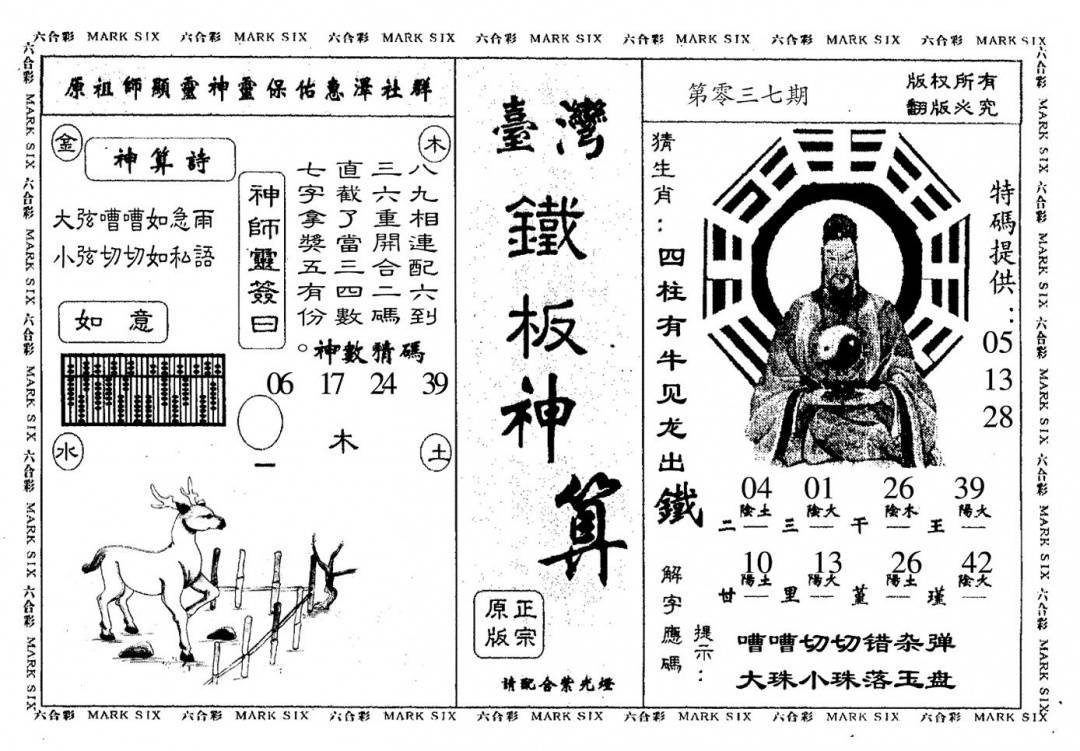 六合彩 MARK SIX 六合彩 MARK SIX 六合彩 MARK SIX 六合彩 MARK SIX 六合彩 MARK SIX 六合彩 MARK SIX 六合彩 MARK SIX
六合彩 MARK SIX 六合彩 MARK SIX 六合彩 MARK SIX 六合彩 MARK SIX 六合彩 MARK SIX
原祖師顯靈神靈保佑惠澤社群
金
木
神算詩
大弦嘈嘈如急雨
小弦切切如私語
如意
神師靈簽曰
八九相連配六到
三六重開合二碼
直截了當三四數
七字拿獎五有份。
神數猜碼
06 17 24 39
木
一
水
土
臺灣
鐵板神算
正宗
原版
請配合紫光燈
第零三七期
版权所有
翻版必究
猜生肖：四柱有牛见龙出鐵
特碼提供：
05
13
28
04 01 26 39
陰土 陰火 陰木 陽火
二 三 干 王
10 13 26 42
陽土 陽火 陽土 陰火
甘 里 堇 瑾
解字應碼
提示：
嘈嘈切切错杂弹
大珠小珠落玉盘
六合彩 MARK SIX 六合彩 MARK SIX 六合彩 MARK SIX 六合彩 MARK SIX 六合彩 MARK SIX
六合彩 MARK SIX 六合彩 MARK SIX 六合彩 MARK SIX 六合彩 MARK SIX 六合彩 MARK SIX 六合彩 MARK SIX 六合彩 MARK SIX